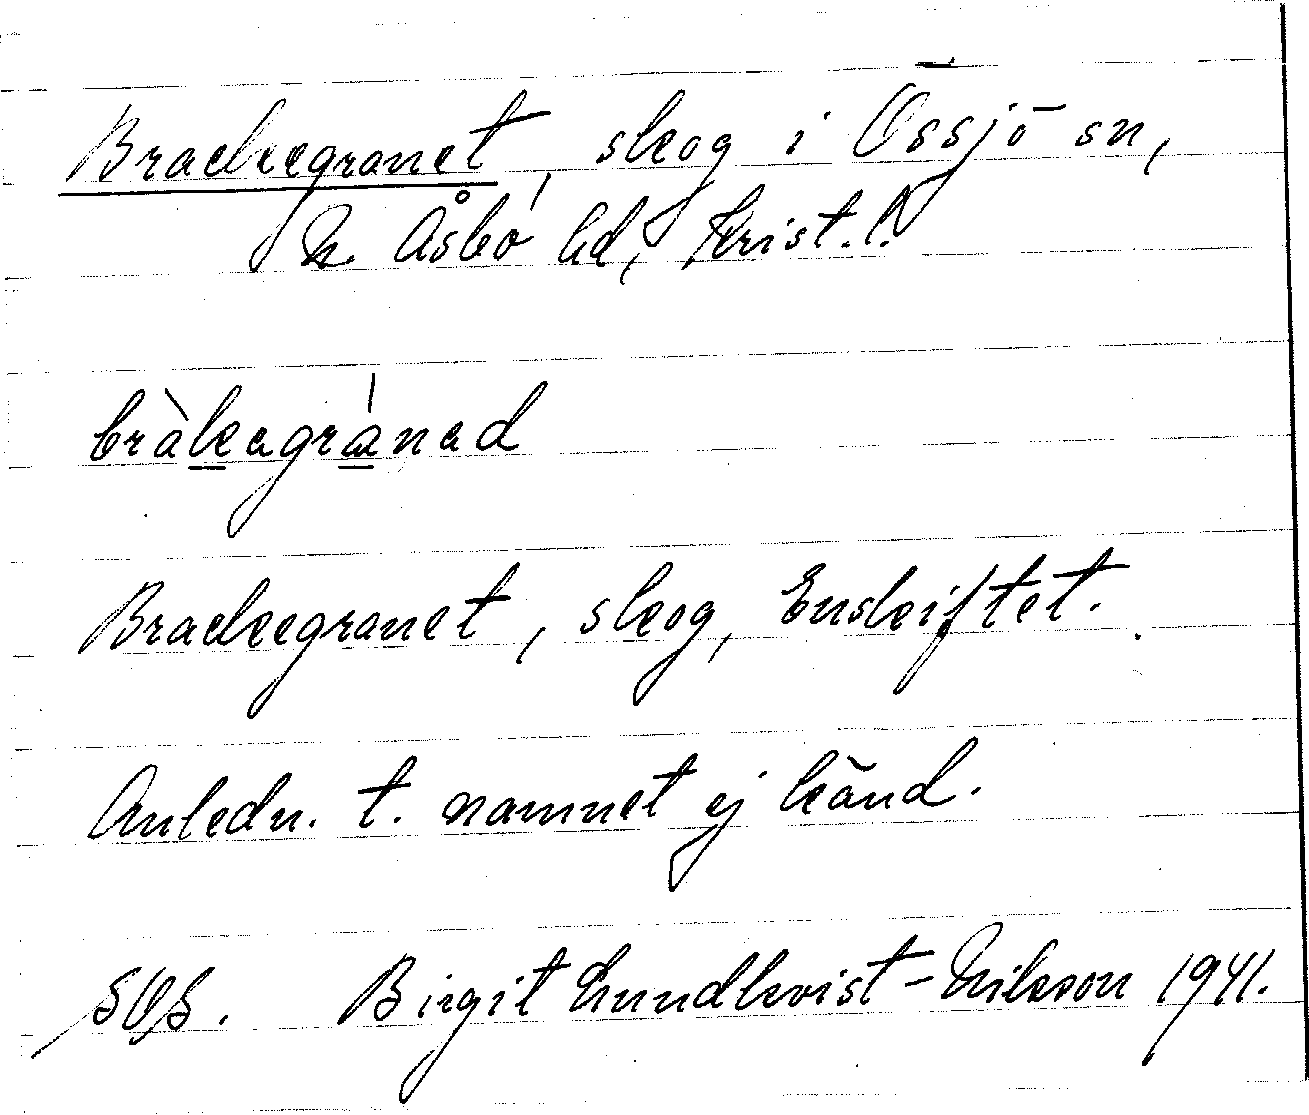 Brackegranet, skog i Össjö sn,
N. Åsbo hd, Krist. l.
bràkagránad
Brackegranet, skog, Enskiftet.
Anledn. t. namnet ej känd.
SOS. Birgit Lundkvist-Nilsson 1941.